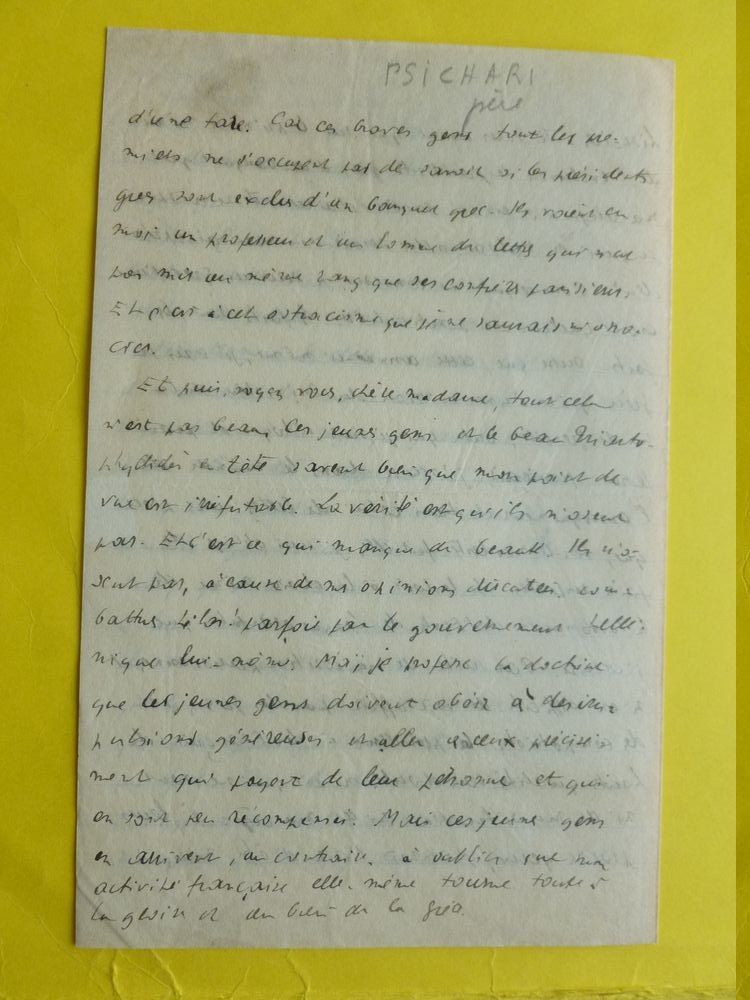 PSICHARI
père
d'une tare. Car ces braves gens tout les pre-
miers, ne s'occupent pas de savoir si les présidents
grecs sont exclus d'un banquet grec. Ils voient en
moi un professeur et un homme de lettres qui n'est
pas mis au même rang que ses confrères parisiens.
Et c'est à cet ostracisme que je ne saurais m'asso-
cier.
Et puis, voyez vous, chère madame, tout cela
n'est pas beau. Ces jeunes gens et le beau Trianta-
phyllidès en tête savent bien que mon point de
vue est irréfutable. La vérité est qu'ils n'osent
pas. Et c'est ce qui manque de beauté. Ils n'o-
sent pas, à cause de mes opinions discutées, com-
battues parfois par le gouvernement hellé-
nique lui-même. Moi, je professe la doctrine
que les jeunes gens doivent obéir à des im-
pulsions généreuses et aller à ceux précisé-
ment qui payent de leur personne et qui
en sont peu récompensés. Mais ces jeunes gens
en arrivent, au contraire, à oublier que mon
activité française elle-même tourne toute à
la gloire et au bien de la Grèce.